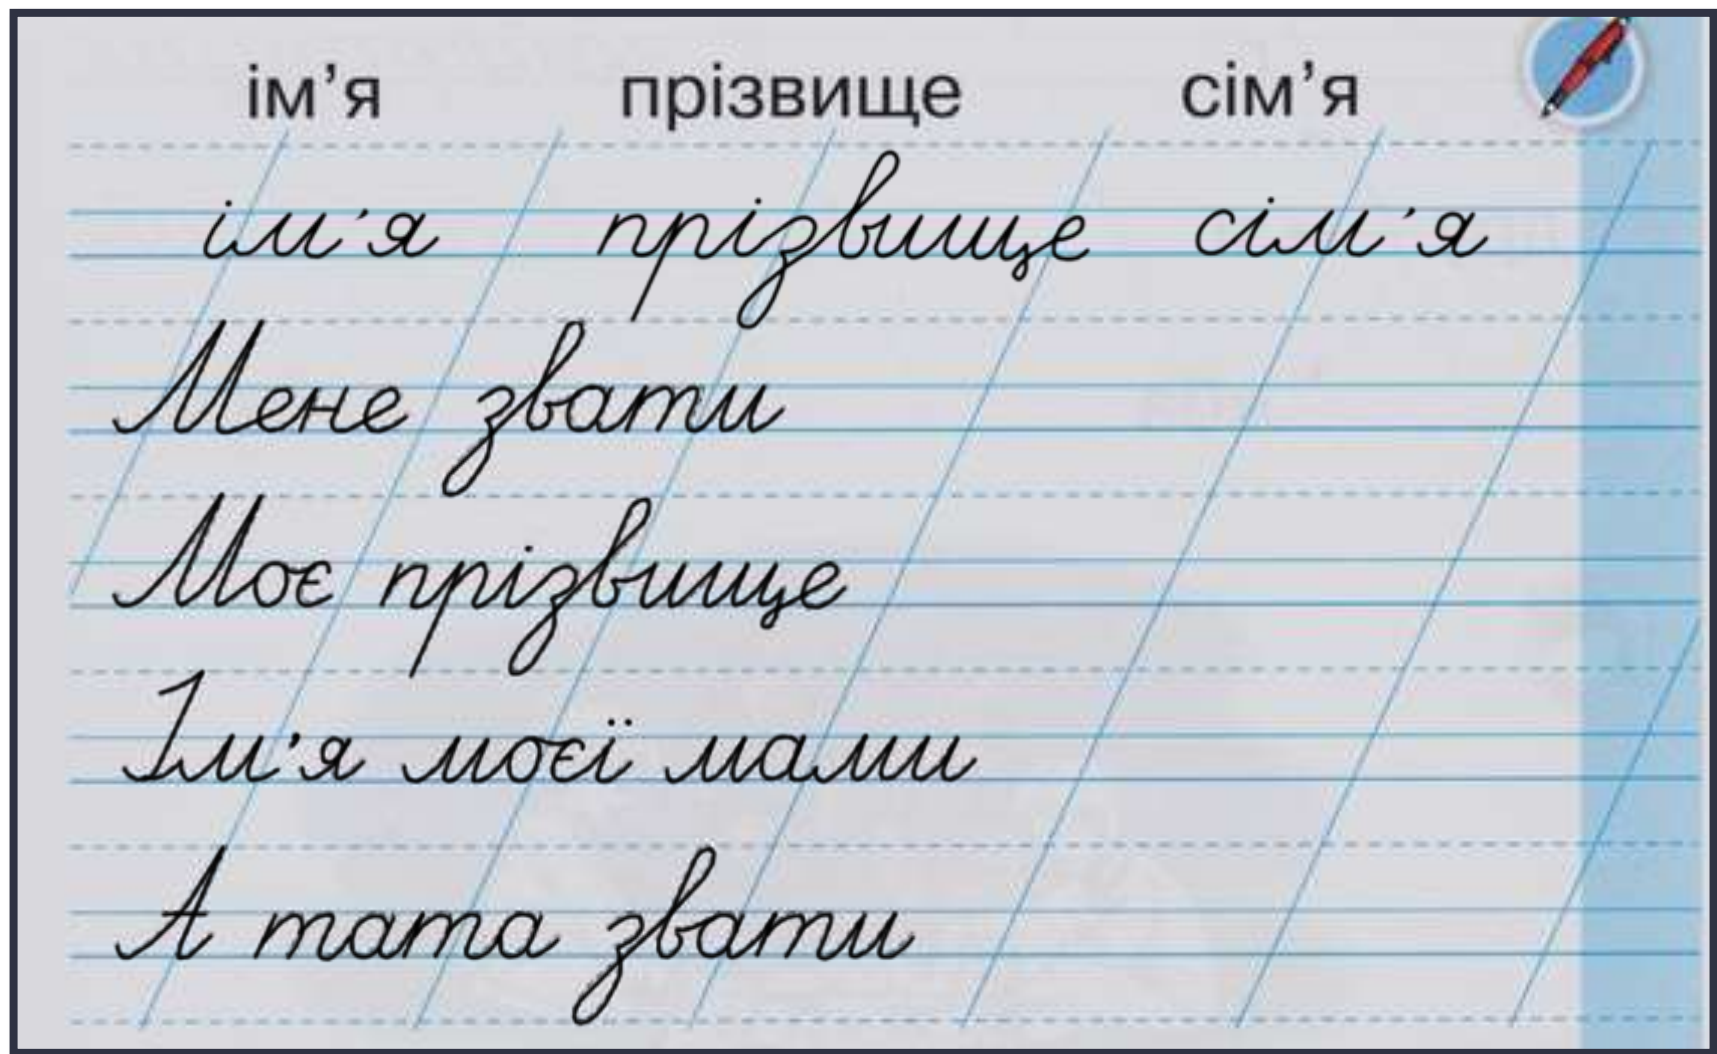 ім’я прізвище сім’я
ім’я прізвище сім’я
Мене звати
Моє прізвище
Ім’я моєї мами
А тата звати